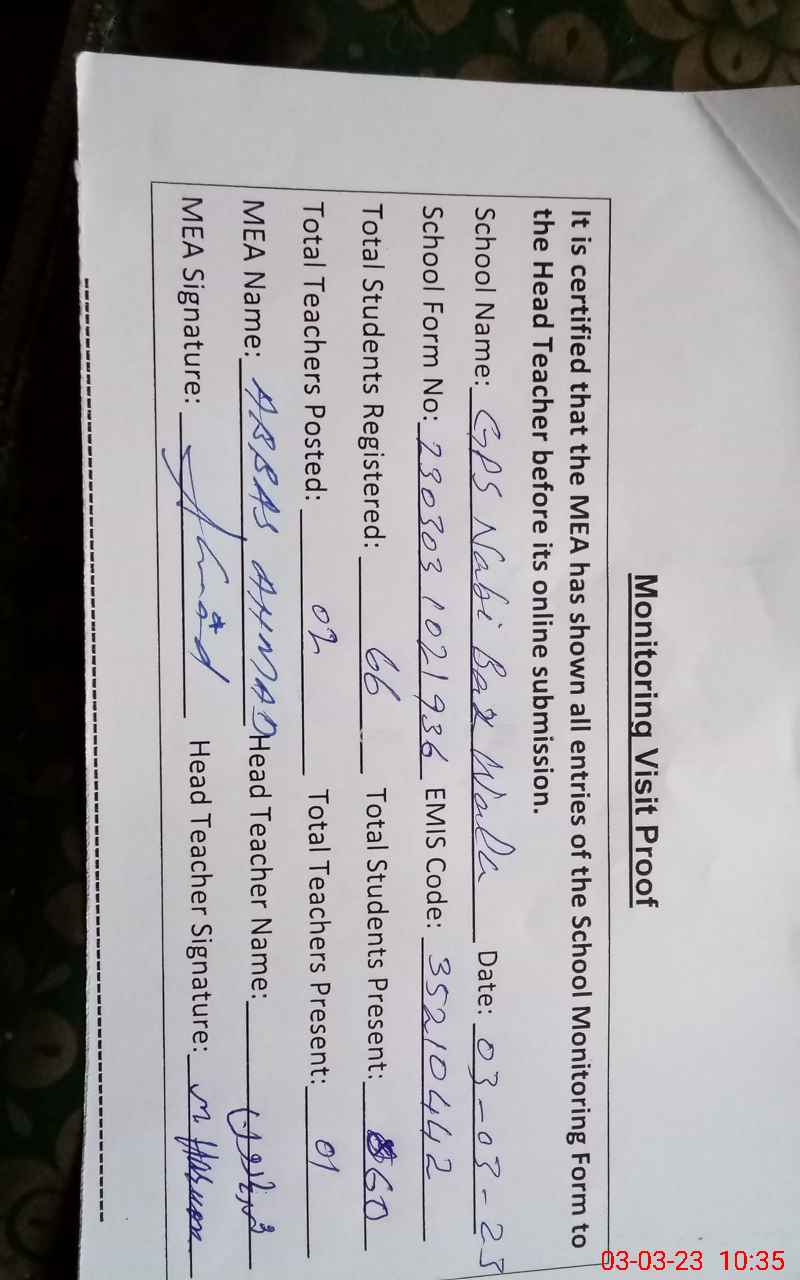 Monitoring Visit Proof
It is certified that the MEA has shown all entries of the School Monitoring Form to
the Head Teacher before its online submission.
School Name: GPS Nabi Bax Wala Date: 03-03-23
School Form No: 230303 1021936 EMIS Code: 35210442
Total Students Registered: 66 Total Students Present: 60
Total Teachers Posted: 02 Total Teachers Present: 01
MEA Name: ABBAS AHMAD Head Teacher Name:
MEA Signature: Head Teacher Signature:
03-03-23 10:35